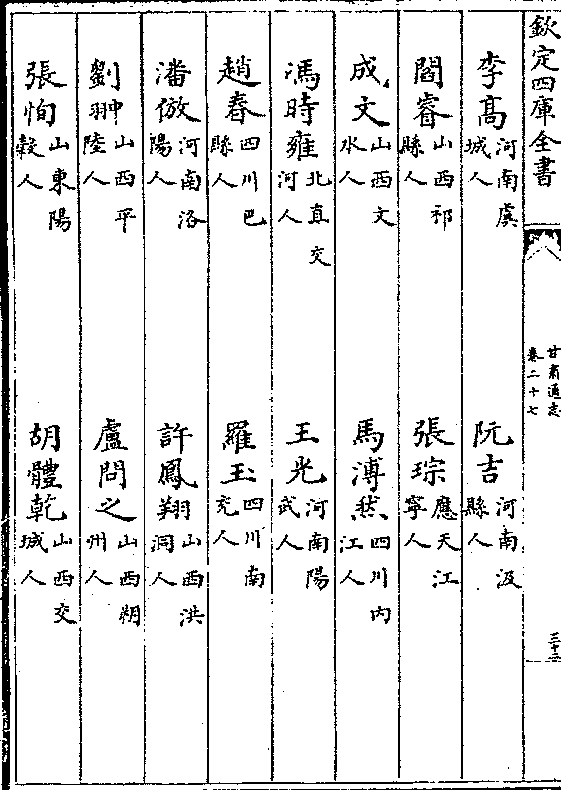 欽定四庫全書
甘肅通志
卷二十七
李高河南虞城人 阮吉河南汲縣人
閻睿山西祁縣人 張琮應天江寧人
成文山西文水人 馬溥然四川内江人
馮時雍北直交河人 王光河南陽武人
趙春四川巴縣人 羅玉四川南充人
潘倣河南洛陽人 許鳳翔山西洪洞人
劉翀山西平陸人 盧問之山西朔州人
張恂山東陽榖人 胡體乾山西交城人